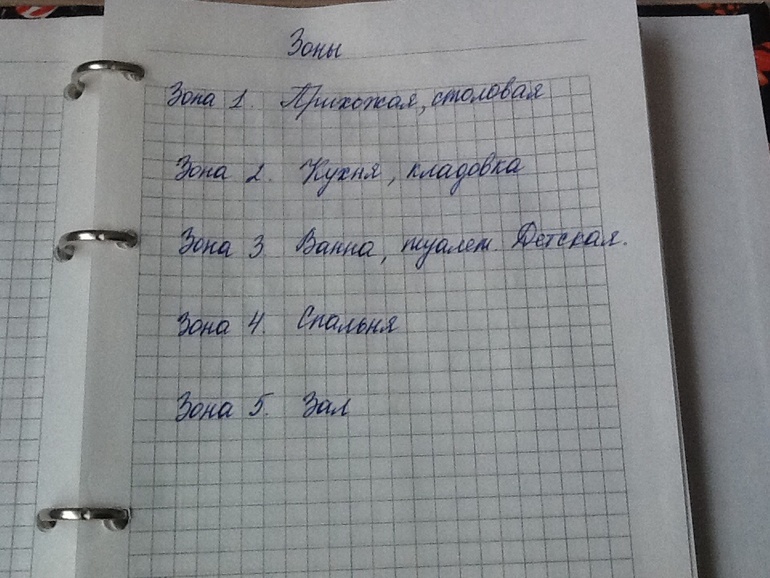 Зоны
Зона 1. Прихожая, столовая
Зона 2. Кухня, кладовка
Зона 3. Ванна, туалет. Детская.
Зона 4. Спальня
Зона 5. Зал